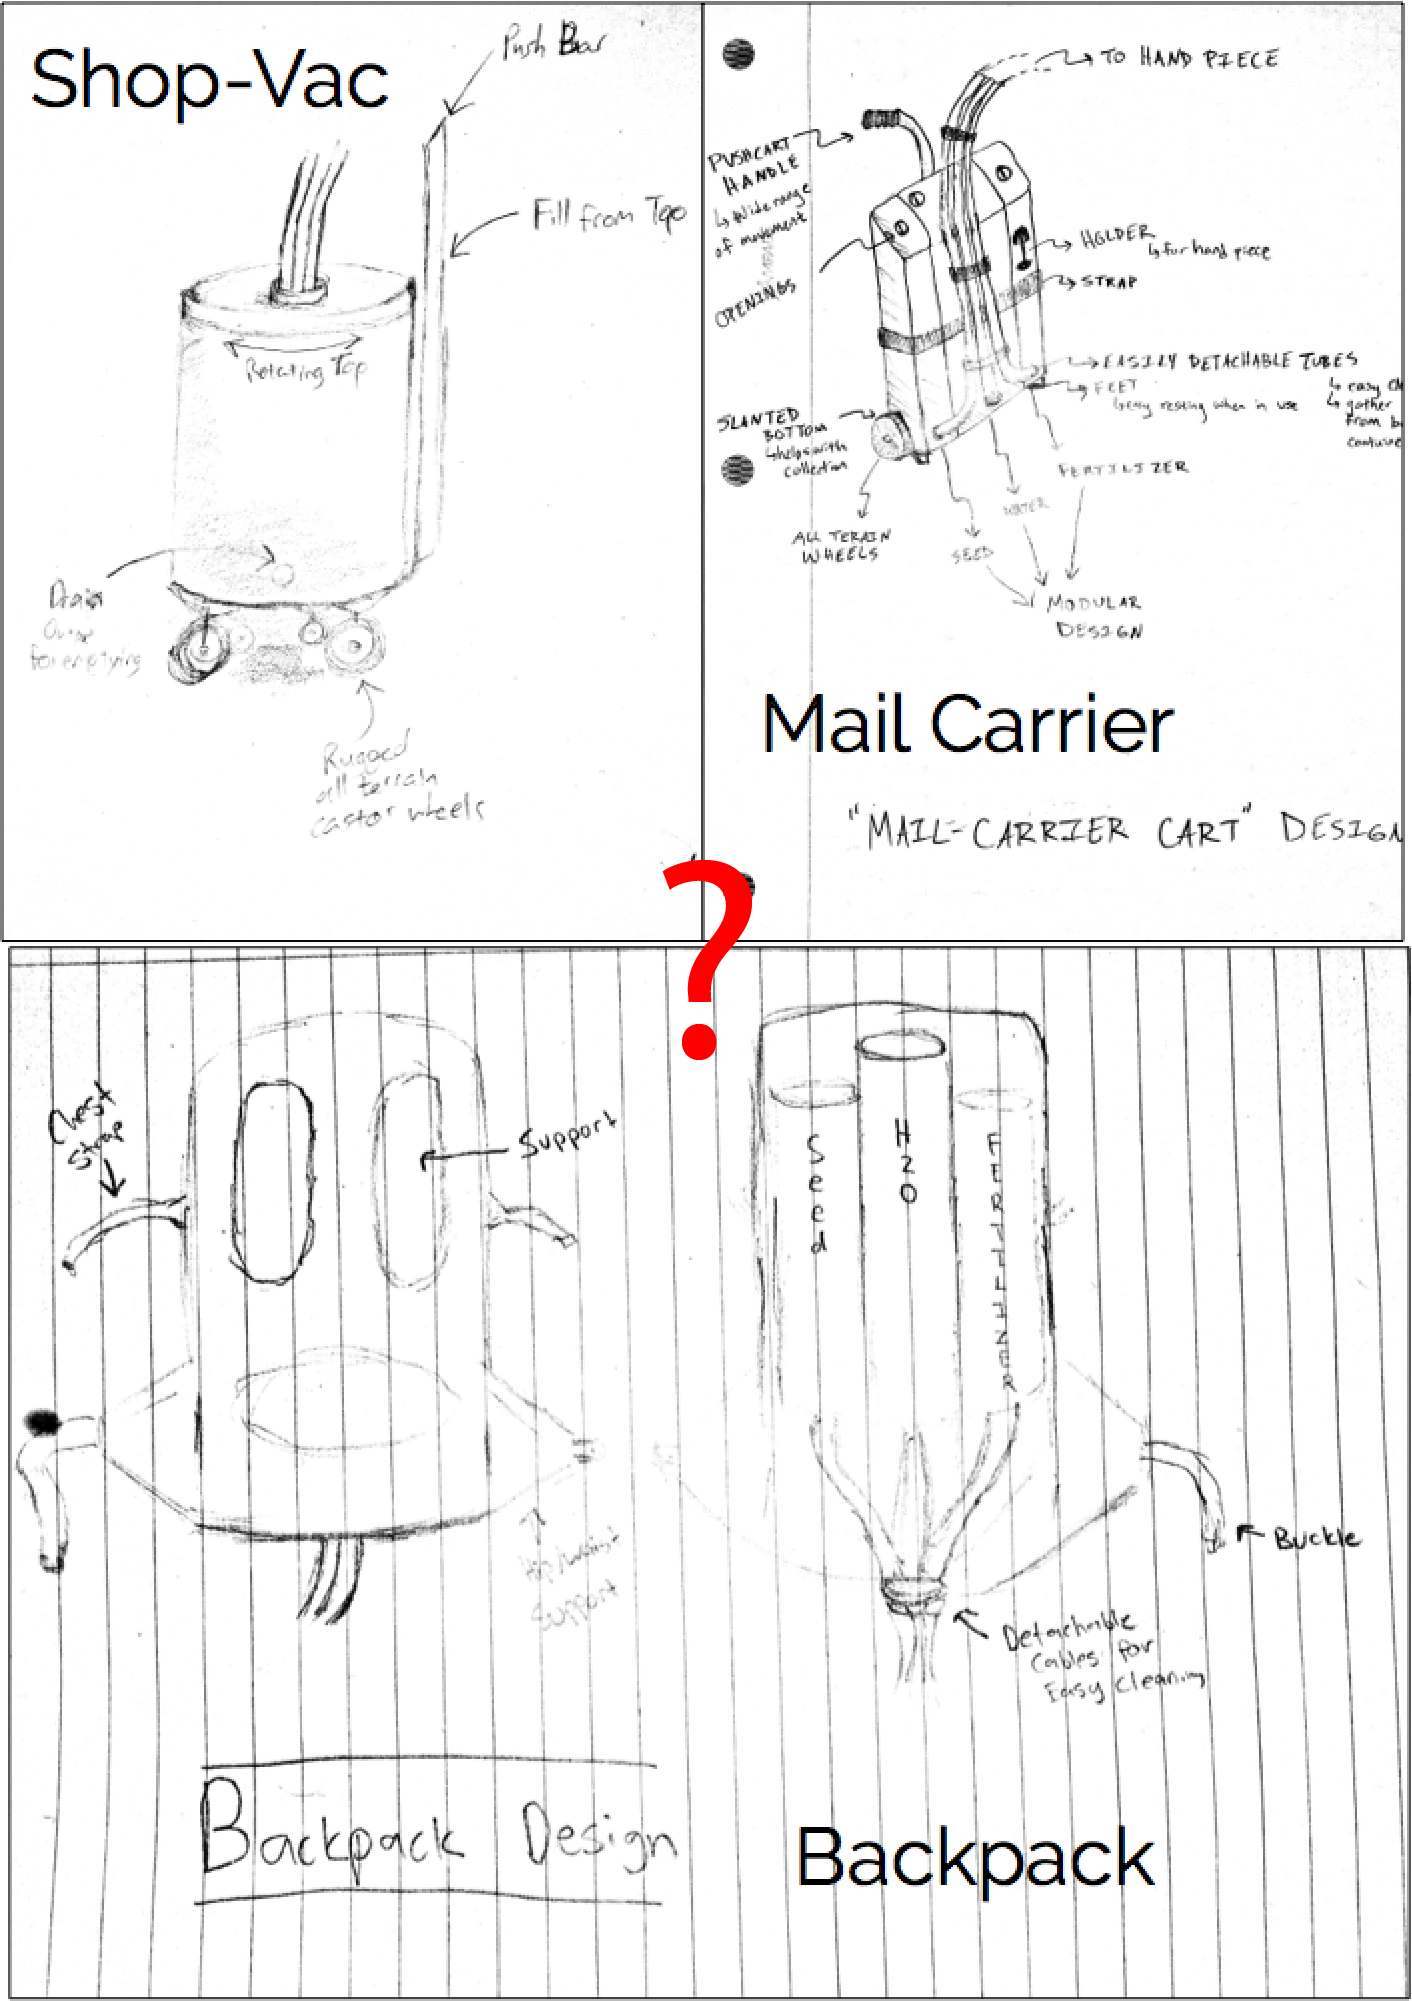 Shop-Vac
Push Bar
Fill from Top
Rotating Top
Drain
for emptying
Rugged
all terrain
castor wheels
TO HAND PIECE
PUSHCART
HANDLE
↳ Wide range
of movement
OPENINGS
HOLDER
↳ for hand piece
STRAP
EASILY DETACHABLE TUBES
↳ easy
↳ gather
from
FEET
↳ easy resting when in use
SLANTED
BOTTOM
↳ helps with
collection
ALL TERRAIN
WHEELS
SEED
WATER
FERTILIZER
MODULAR
DESIGN
Mail Carrier
"MAIL-CARRIER CART" DESIGN
?
Chest
Strap
Support
Support
Seed
H2O
Buckle
Detachable
Cables for
Easy Cleaning
Backpack Design
Backpack